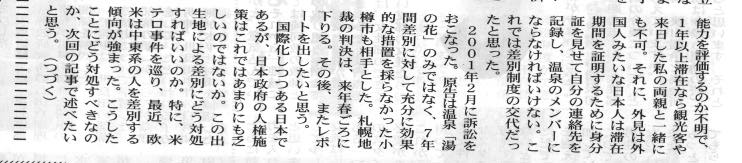 能力を評価するのか不明で、
1年以上滞在なら観光客や
来日した私の両親と一緒に
も不可。それに、外見は外
国人みたいな日本人は滞在
期間を証明するために身分
証を見せて自分の連絡先を
記録し、温泉のメンバーに
ならなければいけない。こ
れでは差別制度の交代だっ
たと思った。
2001年2月に訴訟を
おこなった。原告は温泉「湯
の花」のみではなく、7年
間差別に対して充分に効果
的な措置を採らなかった小
樽市も相手とした。札幌地
裁の判決は、来年春ごろに
下りる。その後、またレポ
ートを出したいと思う。
国際化しつつある日本で
あるが、日本政府の人権施
策はこれではあまりにも乏
しいのではないか。この出
生地による差別にどう対処
すればいいのか。特に、米
テロ事件を巡り、最近、欧
米は中東系の人を差別する
傾向が強まった。こうした
ことにどう対処すべきなの
か、次回の記事で述べたい
と思う。(つづく)